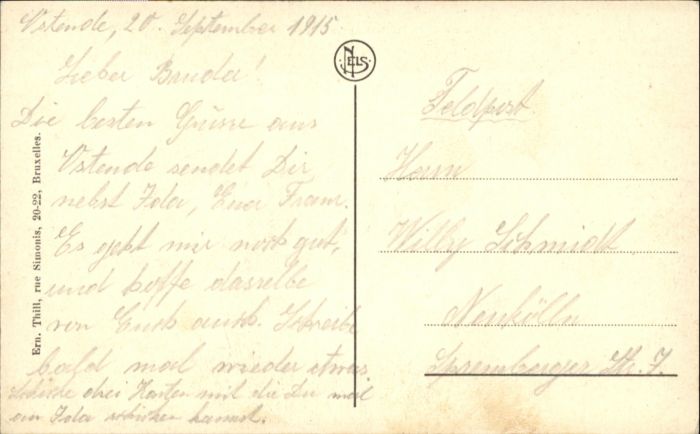 Ostende, 20. September 1915
Lieber Bruder!
Die besten Grüsse aus
Ostende sendet Dir
nebst Ida, Euer Franz.
Es geht mir noch gut,
und hoffe dasselbe
von Euch auch. Schreibe
bald mal wieder etwas
Schicke drei Karten mit die Du mal
an Ida schicken kannst.
Ern. Thill, rue Simonis, 20-22, Bruxelles.
NELS
Feldpost
Herrn
Willy Schmidt
Neukölln
Spremberger Str. 7.